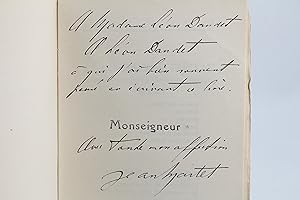 A Madame Léon Daudet
A Léon Daudet
à qui j'ai bien souvent
pensé en écrivant ce livre.
Monseigneur
Avec toute mon affection
Jean Martet